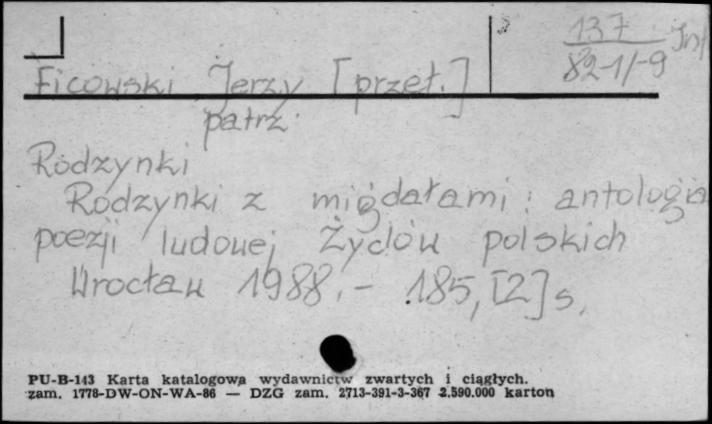 137 Jnf
82-1/-9
Ficowski Jerzy [przeł.]
patrz:
Rodzynki
Rodzynki z migdałami : antologia
poezji ludowej Żydów polskich
Wrocław 1988. - 185, [2] s.
PU-B-143 Karta katalogowa wydawnictw zwartych i ciągłych.
zam. 1778-DW-ON-WA-86 — DZG zam. 2713-391-3-367 2.590.000 karton